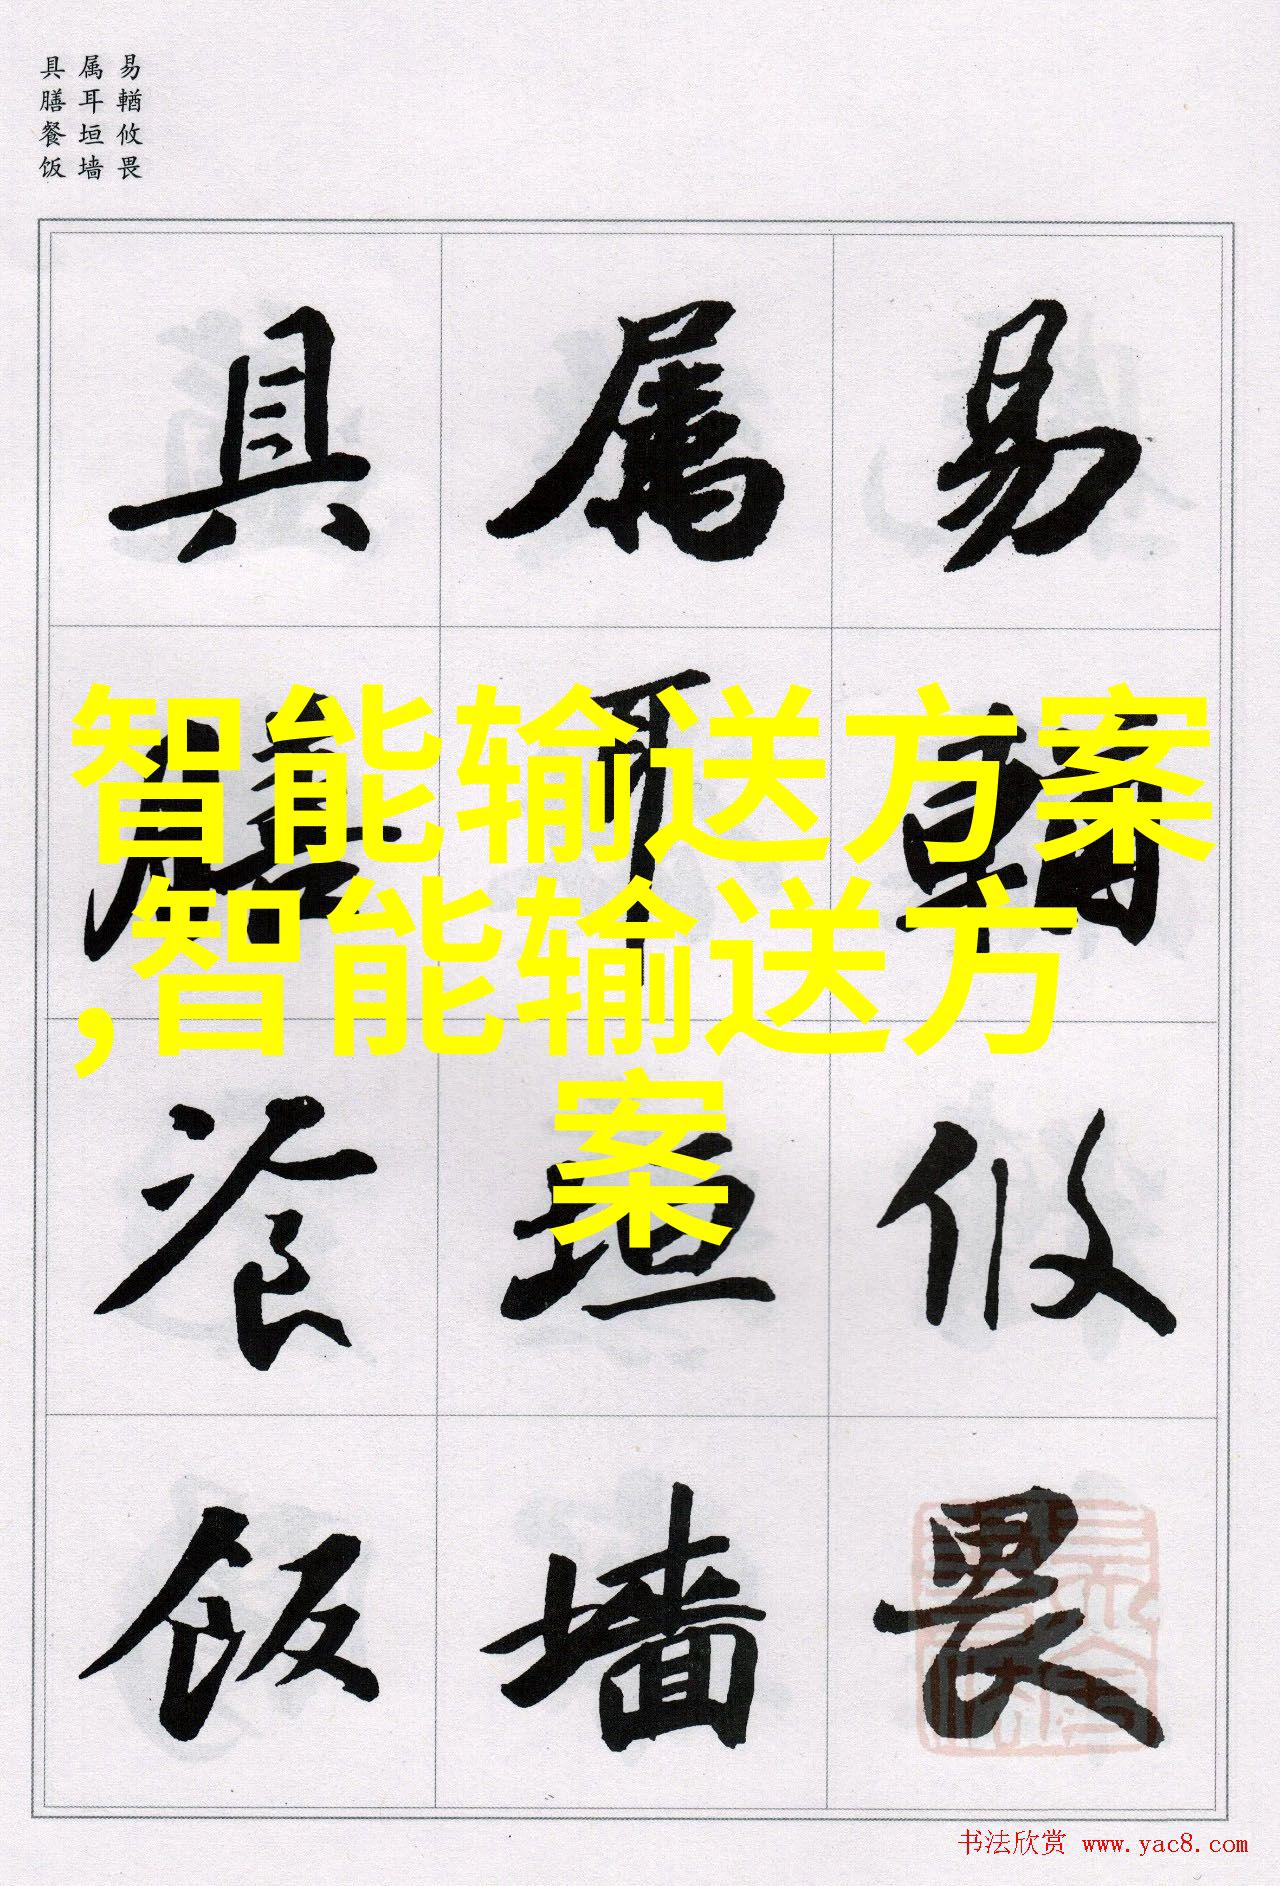 易輶攸畏
属耳垣墙
具膳餐饭
易輶攸畏
属耳垣墙
具膳飡饭
智能输送方案
,智能输送方
案
书法欣赏 www.yac8.com